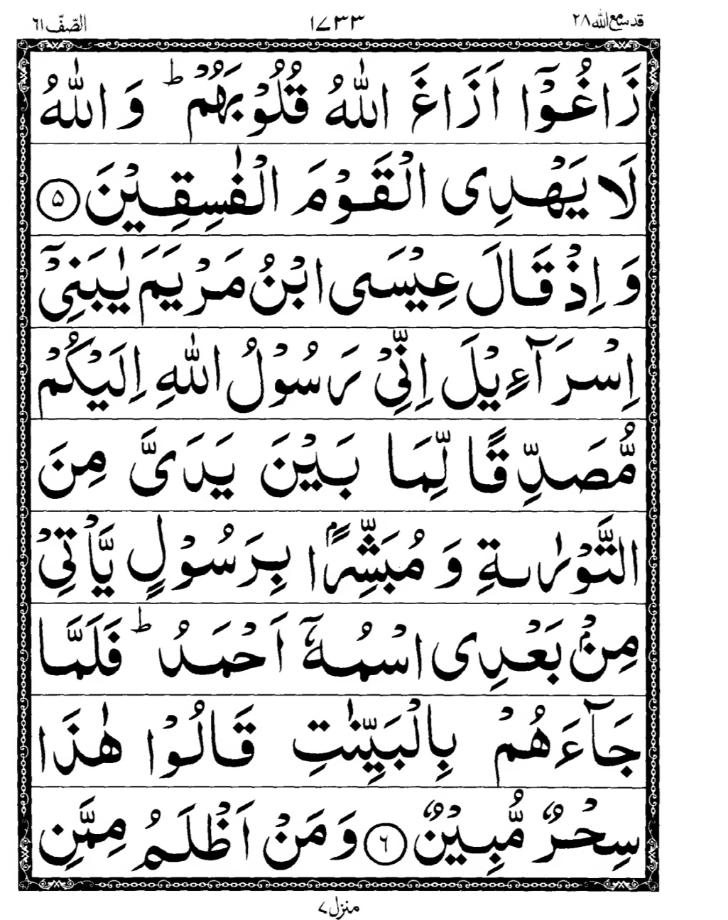 قد سمع الله ٢٨ ١٧٣٣ الصّفّ ٦١
زَاغُوْۤا اَزَاغَ اللّٰهُ قُلُوْبَهُمْ ؕ وَ اللّٰهُ
لَا یَهْدِی الْقَوْمَ الْفٰسِقِیْنَ ۝۵
وَ اِذْ قَالَ عِیْسَی ابْنُ مَرْیَمَ یٰبَنِیْۤ
اِسْرَآءِیْلَ اِنِّیْ رَسُوْلُ اللّٰهِ اِلَیْكُمْ
مُّصَدِّقًا لِّمَا بَیْنَ یَدَیَّ مِنَ
التَّوْرٰىةِ وَ مُبَشِّرًۢا بِرَسُوْلٍ یَّاْتِیْ
مِنْۢ بَعْدِی اسْمُهٗۤ اَحْمَدُ ؕ فَلَمَّا
جَآءَهُمْ بِالْبَیِّنٰتِ قَالُوْا هٰذَا
سِحْرٌ مُّبِیْنٌ ۝۶ وَ مَنْ اَظْلَمُ مِمَّنِ
منزل ٧